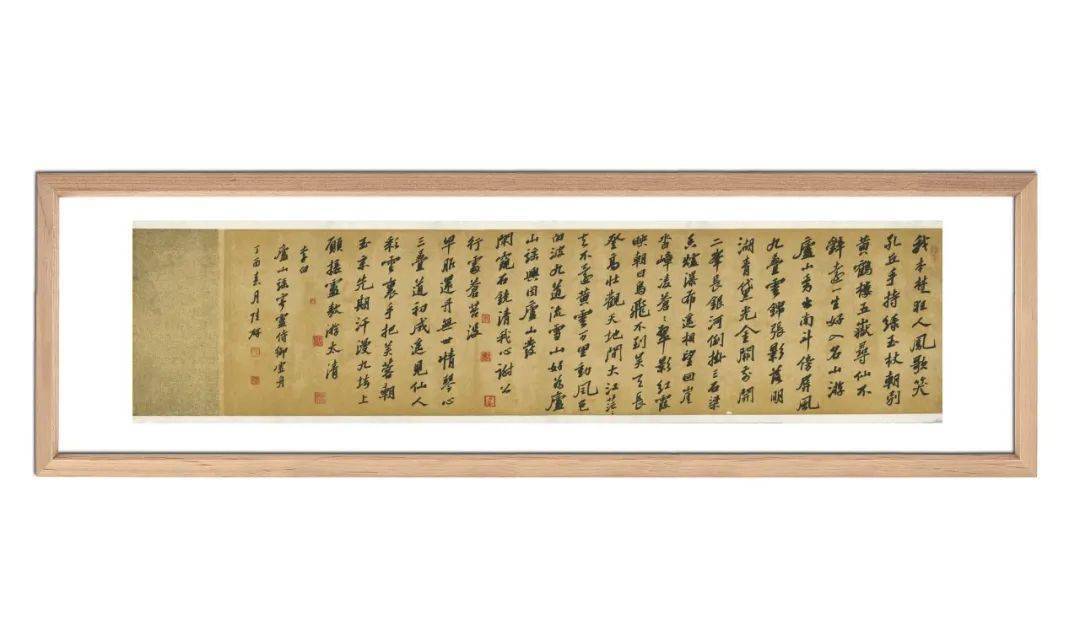 我本楚狂人鳳歌笑
孔丘手持綠玉杖朝別
黃鶴樓五嶽尋仙不
辭遠一生好入名山游
廬山秀出南斗傍屏風
九疊雲錦張影落明
湖青黛光金闕前開
二峯長銀河倒掛三石梁
香爐瀑布遙相望回崖
沓嶂凌蒼〻翠影紅霞
映朝日鳥飛不到吳天長
登高壯觀天地間大江茫〻
去不還黃雲萬里動風色
白波九道流雪山好為廬
山謠興因廬山發
閑窺石鏡清我心謝公
行處蒼苔沒
早服還丹無世情琴心
三疊道初成遙見仙人
彩雲裏手把芙蓉朝
玉京先期汗漫九垓上
願接盧敖游太清
李白
廬山謠寄盧侍御虛舟
丁酉春月陸